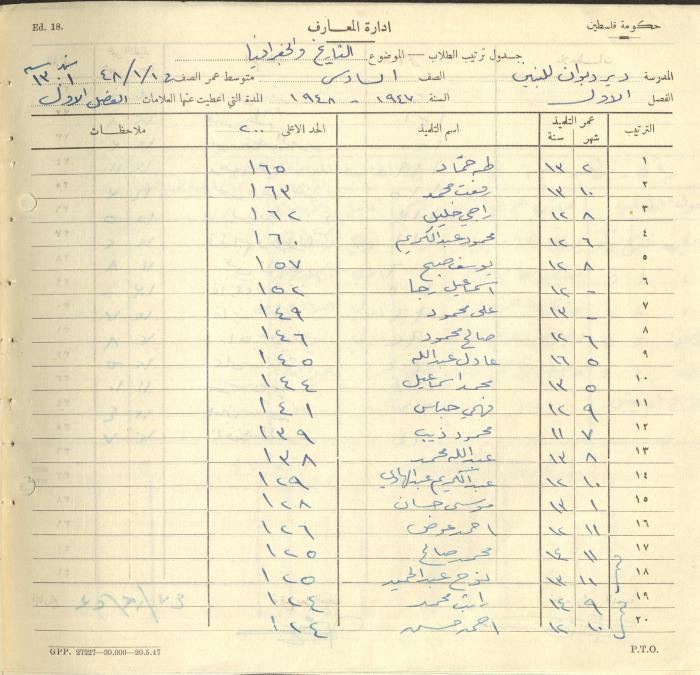 Ed. 18.
ادارة المعارف
حكومة فلسطين
جدول ترتيب الطلاب — الموضوع التاريخ والجغرافيا
المدرسة دير ديوان للبنين الصف السادس متوسط عمر الصف ٤٨/١/١
الفصل الاول السنة ١٩٤٧ - ١٩٤٨ المدة التي اعطيت عنها العلامات الفصل الاول
الترتيب عمر التلميذ شهر سنة اسم التلميذ الحد الاعلى ٢٠٠ ملاحظات
١ ٢ ١٣ طه حمّاد ١٦٥
٢ ١٠ ١٣ رفعت محمد ١٦٣
٣ ٨ ١٢ راجي خليل ١٦٢
٤ ٦ ١٢ محمود عبد الكريم ١٦٠
٥ ٨ ١٢ يوسف صبح ١٥٧
٦ - ١٢ اسماعيل رجا ١٥٢
٧ - ١٣ علي محمود ١٤٩
٨ ٦ ١٢ صالح محمود ١٤٦
٩ ٥ ١٦ عادل عبد الله ١٤٥
١٠ ٥ ١٣ محمد اسماعيل ١٤٤
١١ ٩ ١٢ فهمي عباس ١٤١
١٢ ٧ ١١ محمود ذيب ١٣٩
١٣ ٨ ١٣ عبد الله محمد ١٣٨
١٤ ١٠ ١٢ عبد الكريم عبد الهادي ١٢٩
١٥ ١ ١٣ موسى حسان ١٢٨
١٦ ١١ ١٢ احمد عوض ١٢٦
١٧ ١١ ١٤ محمد صالح ١٢٥
١٨ ١١ ١٣ نوح عبد الحميد ١٢٥
١٩ ٩ ١٤ راتب محمد ١٢٤
٢٠ ١٠ ١٢ احمد حسن ١٢٤
GPP. 27227—30.000—20.5.47
P.T.O.